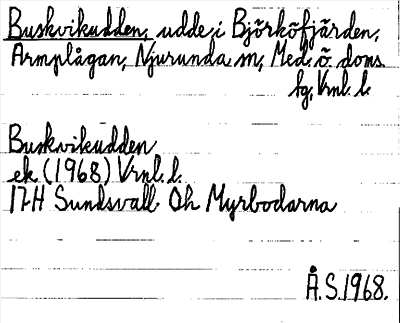 Buskvikudden, udde i Björköfjärden,
Armplågan, Njurunda sn, Med. ö. doms.
fg, Vrnl. l.
Buskvikudden
ek. (1968) Vrnl. l.
17H Sundsvall Oh Myrbodarna
Å.S. 1968.